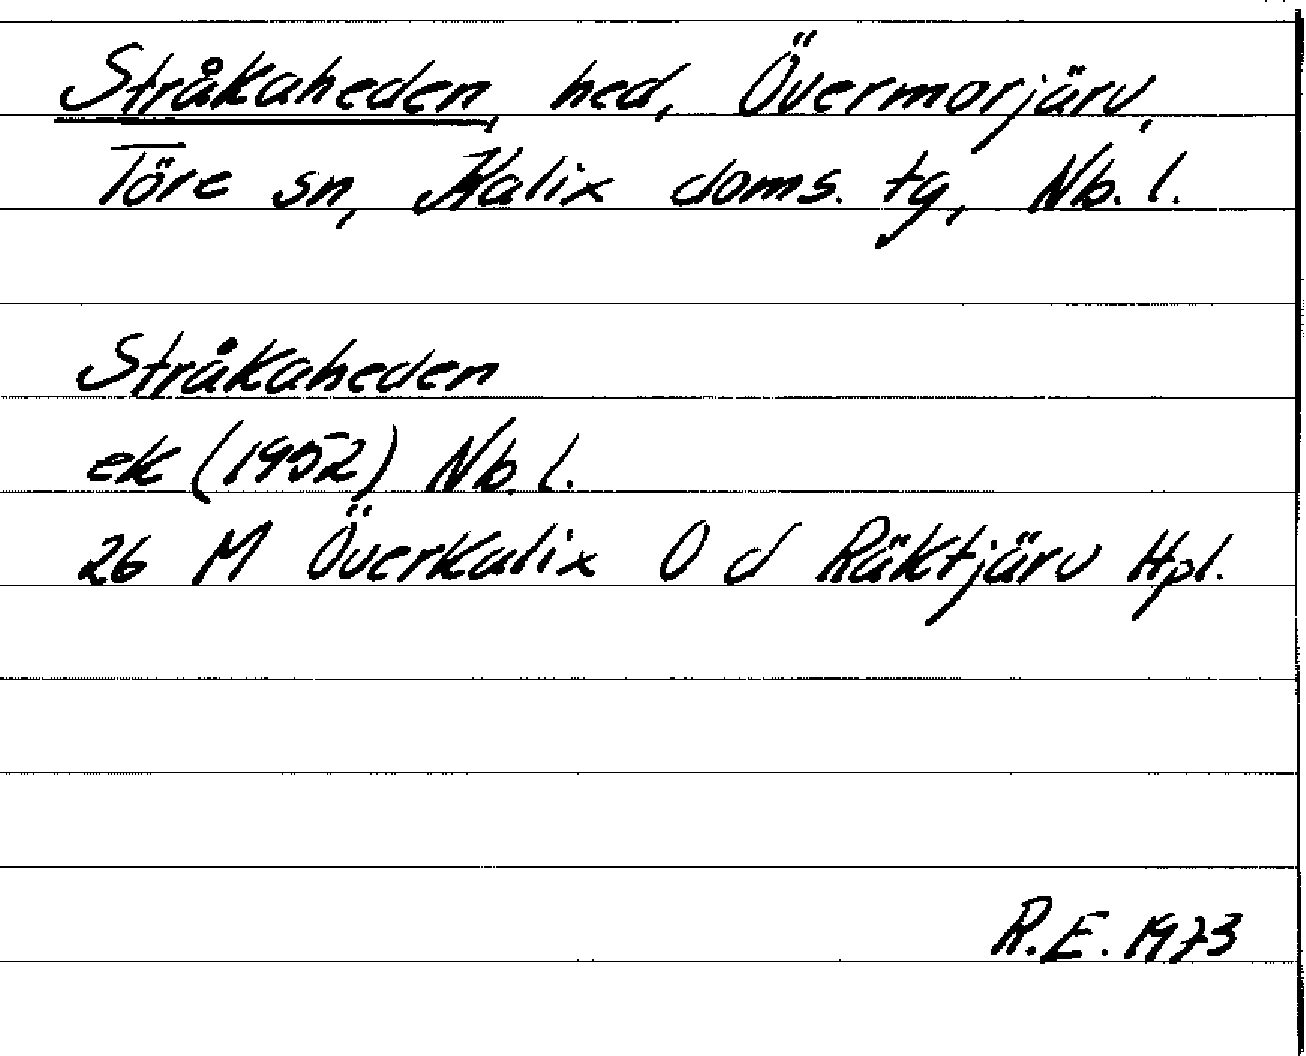 Stråkaheden, hed, Övermorjärv,
Töre sn, Kalix doms. tg, Nb. l.
Stråkaheden
ek (1952) Nb. l.
26 M Överkalix O d Räktjärv Hpl.
R.E. 1973